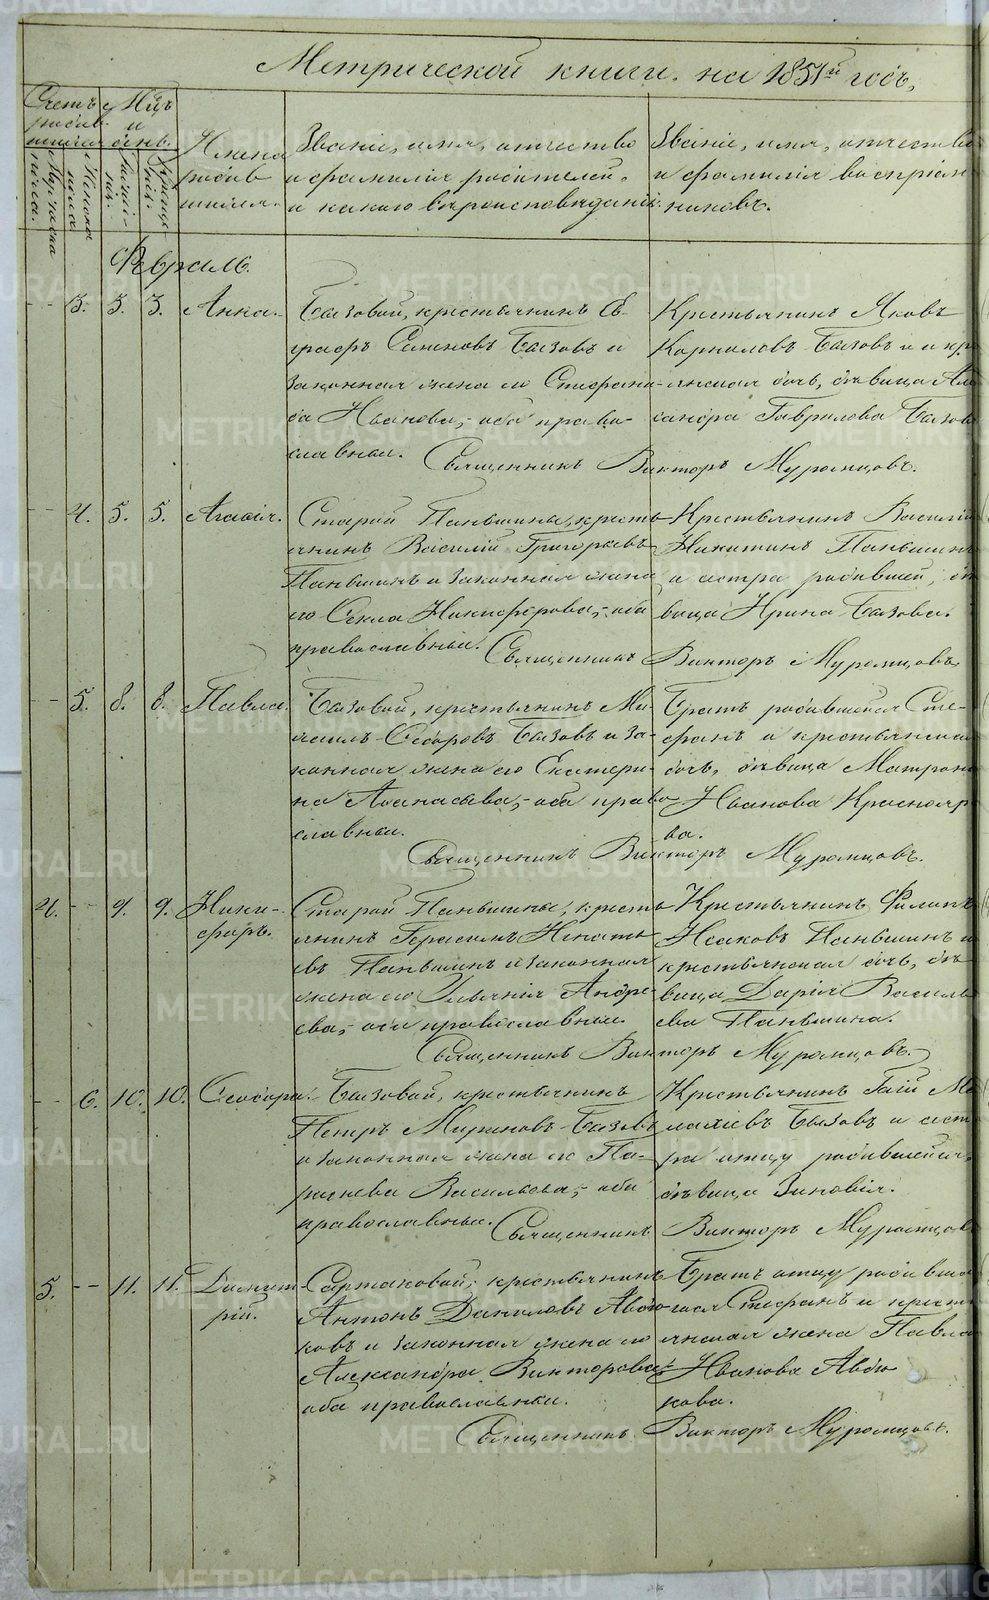 Метрической книги на 1851й годъ,
Счетъ родив-шихся
Мѣсяцъ и день.
Мужеска пола.
Женска пола.
рожде-нія.
креще-нія.
Имена родив-шихся.
Званіе, имя, отчество
и фамилія родителей,
и какого вѣроисповѣданія.
Званіе, имя, отчество
и фамилія воспріем-
никовъ.
Февраль.
-- 3. 3. 3. Анна.
Бызовой, крестьянинъ Ев-
графъ Семеновъ Бызовъ и
законная жена его Стефани-
да Иванова,- оба право-
славныи.
Крестьянинъ Яковъ
Корниловъ Бызовъ и кр
янская дочь, дѣвица Але
сандра Гаврилова Бызов
Священникъ Викторъ Муромцовъ.
-- 4. 5. 5. Агафія.
Старой Паньшины, кресть-
янинъ Василій Григорьевъ
Паньшинъ и законная жена
его Ѳекла Никифорова,- оба
православныи.
Крестьянинъ Василій
Никитинъ Паньшинъ
и сестра родившей, дѣ
вица Ирина Бызова.
Священникъ Викторъ Муромцовъ.
-- 5. 8. 8. Павла.
Бызовой, крестьянинъ Ми-
хаилъ Ѳедоровъ Бызовъ и за-
конная жена его Екатери-
на Аѳанасьева,- оба право
славныи.
Братъ родившейся Сте-
фанъ и крестьянская
дочь, дѣвица Матрона
Иванова Краснояр
ва.
Священникъ Викторъ Муромцовъ.
4. -- 9. 9. Ники-
форъ.
Старой Паньшины, кресть-
янинъ Герасимъ Игнать
евъ Паньшинъ и законная
жена его Ульянія Андре-
ева,- оба православныи.
Крестьянинъ Филипъ
Исаковъ Паньшинъ и
крестьянская дочь, дѣ
вица Дарія Василь
ева Паньшина.
Священникъ Викторъ Муромцовъ.
-- 6. 10. 10. Ѳеодора.
Бызовой, крестьянинъ
Петръ Мироновъ Бызовъ
и законная жена его Па-
раскева Васильева,- оба
православныи.
Крестьянинъ Гаій Ма
лахіевъ Бызовъ и сест
ра отцу родившейся,
дѣвица Зиновія.
Священникъ Викторъ Муромцовъ
5. -- 11. 11. Димит-
рій.
Сарпаковой, крестьянинъ
Антонъ Даниловъ Авдю
ковъ и законная жена его
Александра Викторова,
оба православныи.
Братъ отцу родивша
гося Стефанъ и кресть
янская жена Павла
Иванова Авдю
кова.
Священникъ Викторъ Муромцовъ.
METRIKI.GASO-URAL.RU